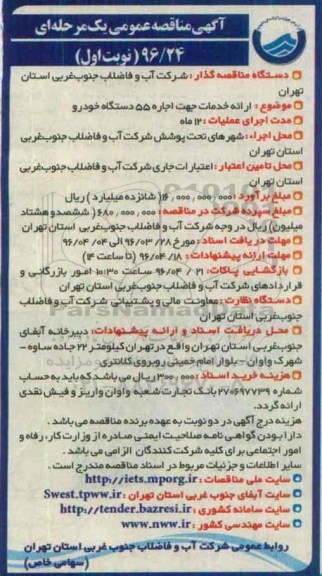 آگهی مناقصه عمومی یک مرحله‌ای
۹۶/۲۴ (نوبت اول)
دستگاه مناقصه گذار : شرکت آب و فاضلاب جنوب‌غربی استان
تهران
موضوع : ارائه خدمات جهت اجاره ۵۵ دستگاه خودرو
مدت اجرای عملیات : ۱۲ ماه
محل اجراء : شهرهای تحت پوشش شرکت آب و فاضلاب جنوب‌غربی
استان تهران
محل تامین اعتبار : اعتبارات جاری شرکت آب و فاضلاب جنوب‌غربی
استان تهران
مبلغ برآورد : ۱۶,۰۰۰,۰۰۰,۰۰۰ ( شانزده میلیارد ) ریال
مبلغ سپرده شرکت در مناقصه : ۶۸۰,۰۰۰,۰۰۰ ( ششصد و هشتاد
میلیون) ریال در وجه شرکت آب و فاضلاب جنوب‌غربی استان تهران
مهلت دریافت اسناد : مورخ ۹۶/۰۳/۲۸ الی ۹۶/۰۴/۰۴
مهلت ارائه پیشنهادات : ۹۶/۰۴/۱۸ (تا ساعت ۱۴)
بازگشایی پاکات: ۹۶/۰۴/۲۱ ساعت ۱۰:۳۰ امور بازرگانی و
قراردادهای شرکت آب و فاضلاب جنوب‌غربی استان تهران
دستگاه نظارت : معاونت مالی و پشتیبانی شرکت آب و فاضلاب
جنوب‌غربی استان تهران
محل دریافت اسناد و ارائه پیشنهادات: دبیرخانه آبفای
جنوب‌غربی استان تهران واقع در تهران کیلومتر ۲۲ جاده ساوه -
شهرک واوان - بلوار امام خمینی روبروی کلانتری
هزینه خرید اسناد : ۳۰۰,۰۰۰ ریال می باشد که باید به حساب
شماره ۲۷۰۶۹۷۷۳۹ بانک تجارت شعبه واوان واریز و فیش نقدی
ارائه گردد.
هزینه درج آگهی در دو نوبت به عهده برنده مناقصه می باشد .
دارا بودن گواهی نامه صلاحیت ایمنی صادره از وزارت کار، رفاه و
امور اجتماعی برای کلیه شرکت کنندگان الزامی می باشد .
سایر اطلاعات و جزئیات مربوط در اسناد مناقصه مندرج است .
سایت ملی مناقصات : http://iets.mporg.ir
سایت آبفای جنوب غربی استان تهران : Swest.tpww.ir
سایت سامانه کشوری : http://tender.bazresi.ir
سایت مهندسی کشور : www.nww.ir
روابط عمومی شرکت آب و فاضلاب جنوب غربی استان تهران
(سهامی خاص)